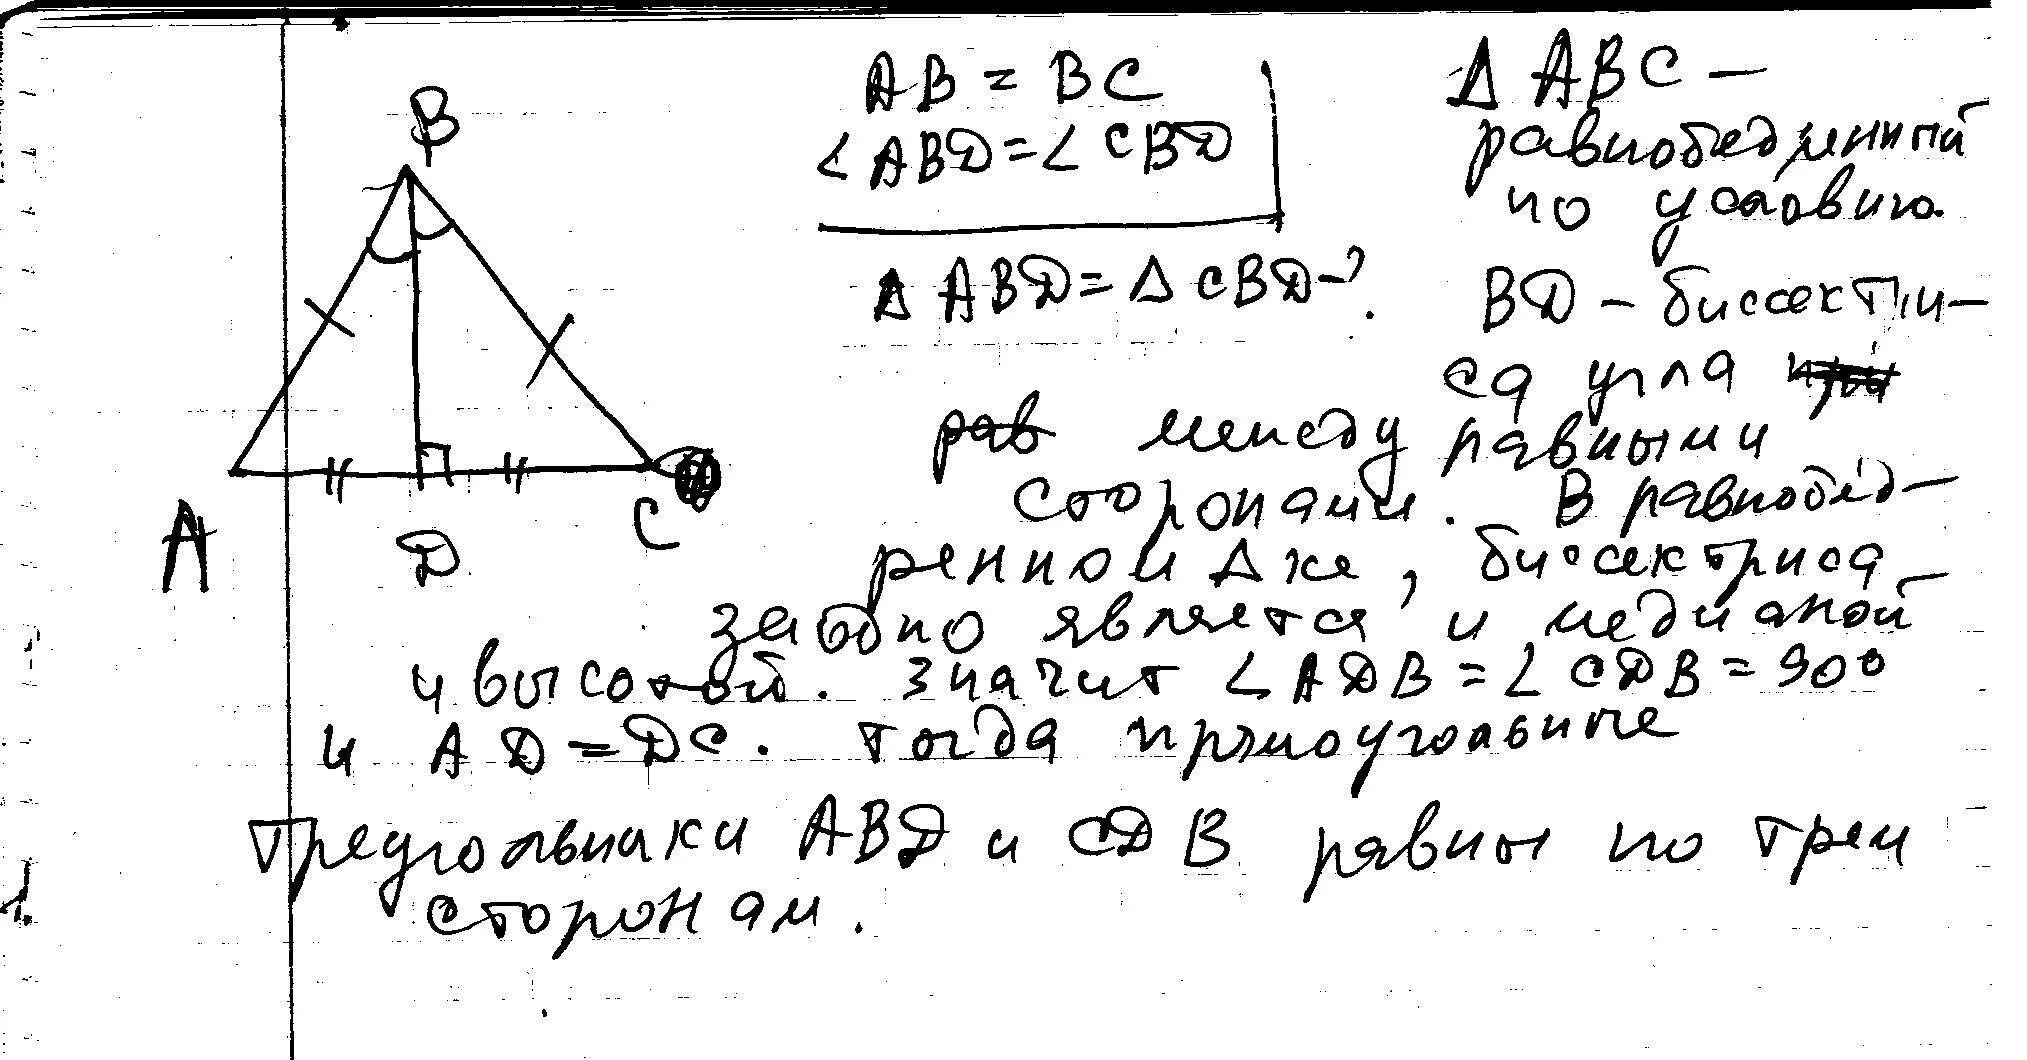 B
A
D
C
AB = BC
∠ABD = ∠CBD
Δ ABD = Δ CBD - ?
Δ ABC —
равнобедренный
по условию.
BD – биссектри-
са угла
рав между равными
сторонами. В равнобед-
ренном Δ-ке, биссектриса
является и медианой
и высотой. Значит ∠ADB = ∠CDB = 90°
и AD = DC. Тогда прямоугольные
треугольники ABD и CDB равны по трем
сторонам.